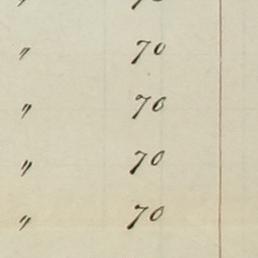 " 70
" 70
" 70
" 70